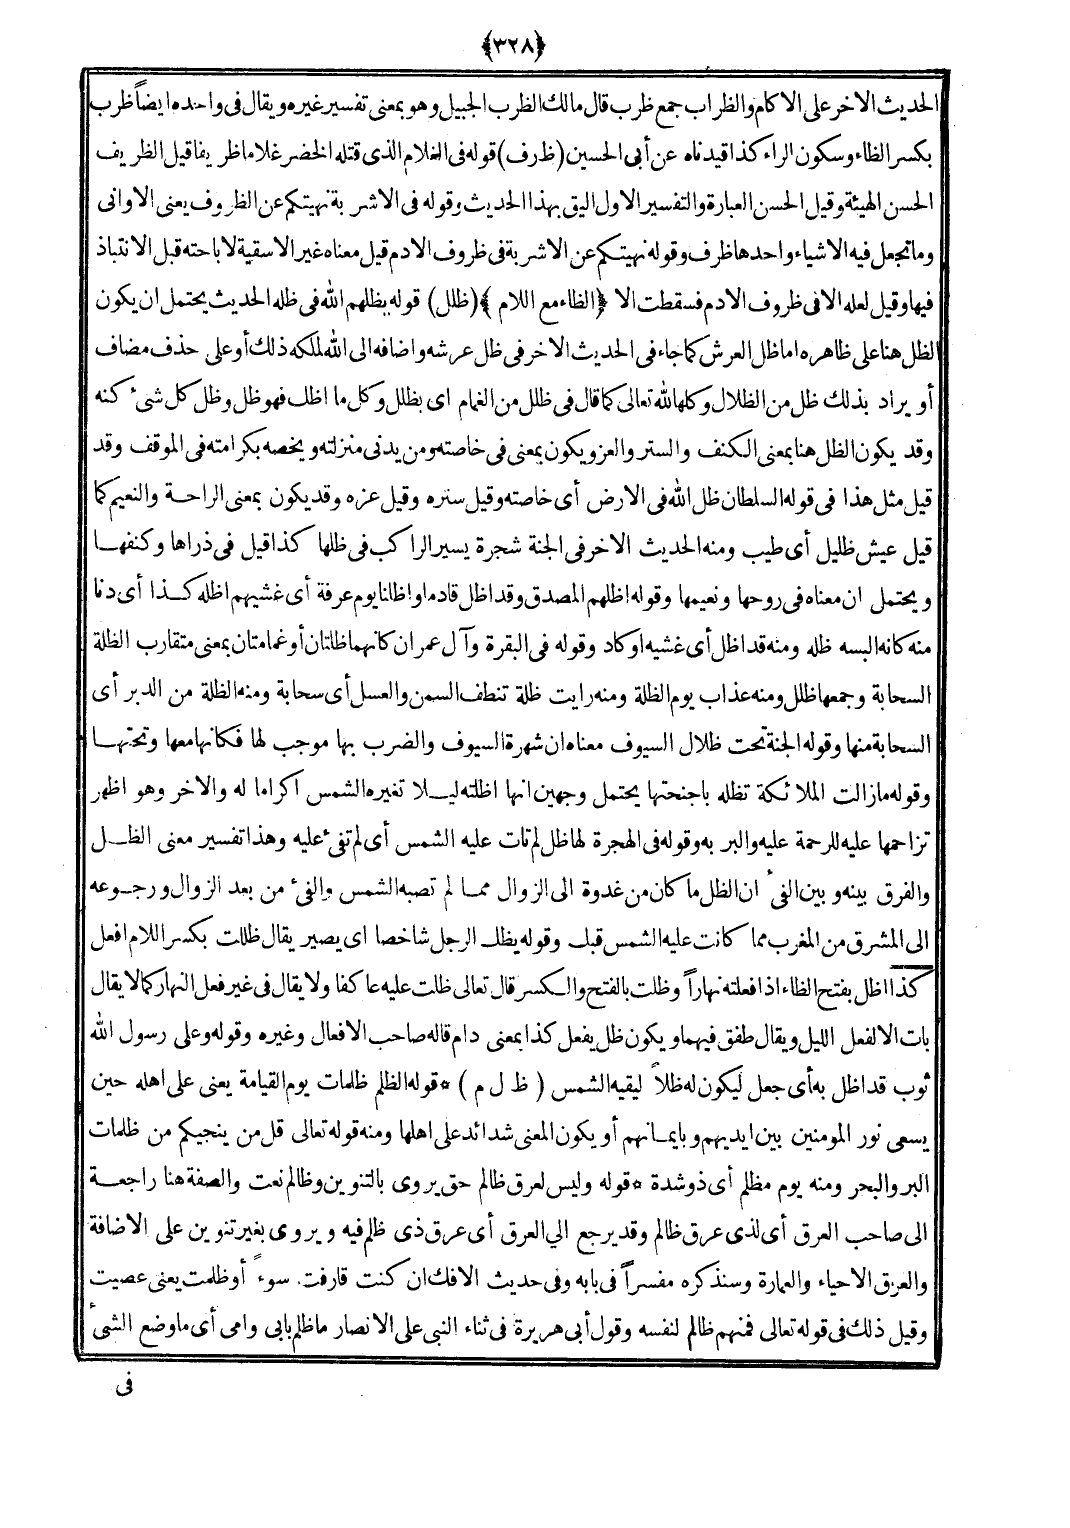 ﴿٣٢٨﴾
الحديث الاخر على الاكام والظراب جمع ظرب قال مالك الظرب الجبيل وهو بمعنى تفسير غيره ويقال فى واحده ايضاً ظرب
بكسر الظاء وسكون الراء كذا قيدناه عن أبى الحسين (ظ رف) قوله فى الغلام الذى قتله الخضر غلاما ظريفا قيل الظريف
الحسن الهيئة وقيل الحسن العبارة والتفسير الاول اليق بهذا الحديث وقوله فى الاشربة نهيتكم عن الظروف يعنى الاوانى
وما تجعل فيه الاشياء واحدها ظرف وقوله نهيتكم عن الاشربة فى ظروف الادم قيل معناه غير الاسقية لاباحته قبل الانتباذ
فيها وقيل لعله الا فى ظروف الادم فسقطت الا ﴿الظاء مع اللام﴾ (ظلل) قوله يظلهم الله فى ظله الحديث يحتمل ان يكون
الظل هنا على ظاهره اما ظل العرش كما جاء فى الحديث الاخر فى ظل عرشه واضافه الى الله لملكه ذلك أو على حذف مضاف
أو يراد بذلك ظل من الظلال وكلها لله تعالى كما قال فى ظلل من الغمام اى بظلل وكل ما اظلك فهو ظل وظل كل شىء كنه
وقد يكون الظل هنا بمعنى الكنف والستر والعز ويكون بمعنى فى خاصته ومن يدنى منزلته ويخصه بكرامته فى الموقف وقد
قيل مثل هذا فى قوله السلطان ظل الله فى الارض أى خاصته وقيل ستره وقيل عزه وقد يكون بمعنى الراحة والنعيم كما
قيل عيش ظليل أى طيب ومنه الحديث الاخر فى الجنة شجرة يسير الراكب فى ظلها كذا قيل فى ذراها وكنفها
ويحتمل ان معناه فى روحها ونعيمها وقوله اظلهم المصدق وقد اظل قادما واظلنا يوم عرفة أى غشيهم اظله كذا أى دنا
منه كانه البسه ظله ومنه قد اظل أى غشيه اوكاد وقوله فى البقرة وآل عمران كانهما ظلتان أو غمامتان بمعنى متقارب الظلة
السحابة وجمعها ظلل ومنه عذاب يوم الظلة ومنه رايت ظلة تنطف السمن والعسل أى سحابة ومنه الظلة من الدبر أى
السحابة منها وقوله الجنة تحت ظلال السيوف معناه ان شهرة السيوف والضرب بها موجب لها فكانها معها وتحتها
وقوله مازالت الملائكة تظله باجنحتها يحتمل وجهين انها اظلته ليلا تغيره الشمس اكراما له والاخر وهو اظهر
تزاحمها عليه للرحمة عليه والبر به وقوله فى الهجرة لها ظل لم تات عليه الشمس أى لم تفىء عليه وهذا تفسير معنى الظل
والفرق بينه وبين الفىء ان الظل ما كان من غدوة الى الزوال مما لم تصبه الشمس والفىء من بعد الزوال ورجوعه
الى المشرق من المغرب مما كانت عليه الشمس قبل وقوله يظل الرجل شاخصا اى يصير يقال ظللت بكسر اللام افعل
كذا اظل بفتح الظاء اذا فعلته نهاراً وظلت بالفتح والكسر قال تعالى ظلت عليه عاكفا ولا يقال فى غير فعل النهار كما لا يقال
بات الا لفعل الليل ويقال طفق فيهما ويكون ظل يفعل كذا بمعنى دام قاله صاحب الافعال وغيره وقوله وعلى رسول الله
ثوب قد اظل به أى جعل ليكون له ظلاً ليقيه الشمس ( ظ ل م ) ٭قوله الظلم ظلمات يوم القيامة يعنى على اهله حين
يسعى نور المومنين بين ايديهم وبايمانهم أو يكون المعنى شدائد على اهلها ومنه قوله تعالى قل من ينجيكم من ظلمات
البر والبحر ومنه يوم مظلم أى ذو شدة ٭قوله وليس لعرق ظالم حق يروى بالتنوين وظالم نعت والصفة هنا راجعة
الى صاحب العرق أى لذى عرق ظالم وقد يرجع الي العرق أى عرق ذى ظلم فيه ويروى بغير تنوين على الاضافة
والعرق الاحياء والعمارة وسنذكره مفسراً فى بابه وفى حديث الافك ان كنت قارفت سوءً أو ظلمت يعنى عصيت
وقيل ذلك فى قوله تعالى فمنهم ظالم لنفسه وقول أبى هريرة فى ثناء النبى على الانصار ماظلم بابى وامى أى ما وضع الشىء
فى